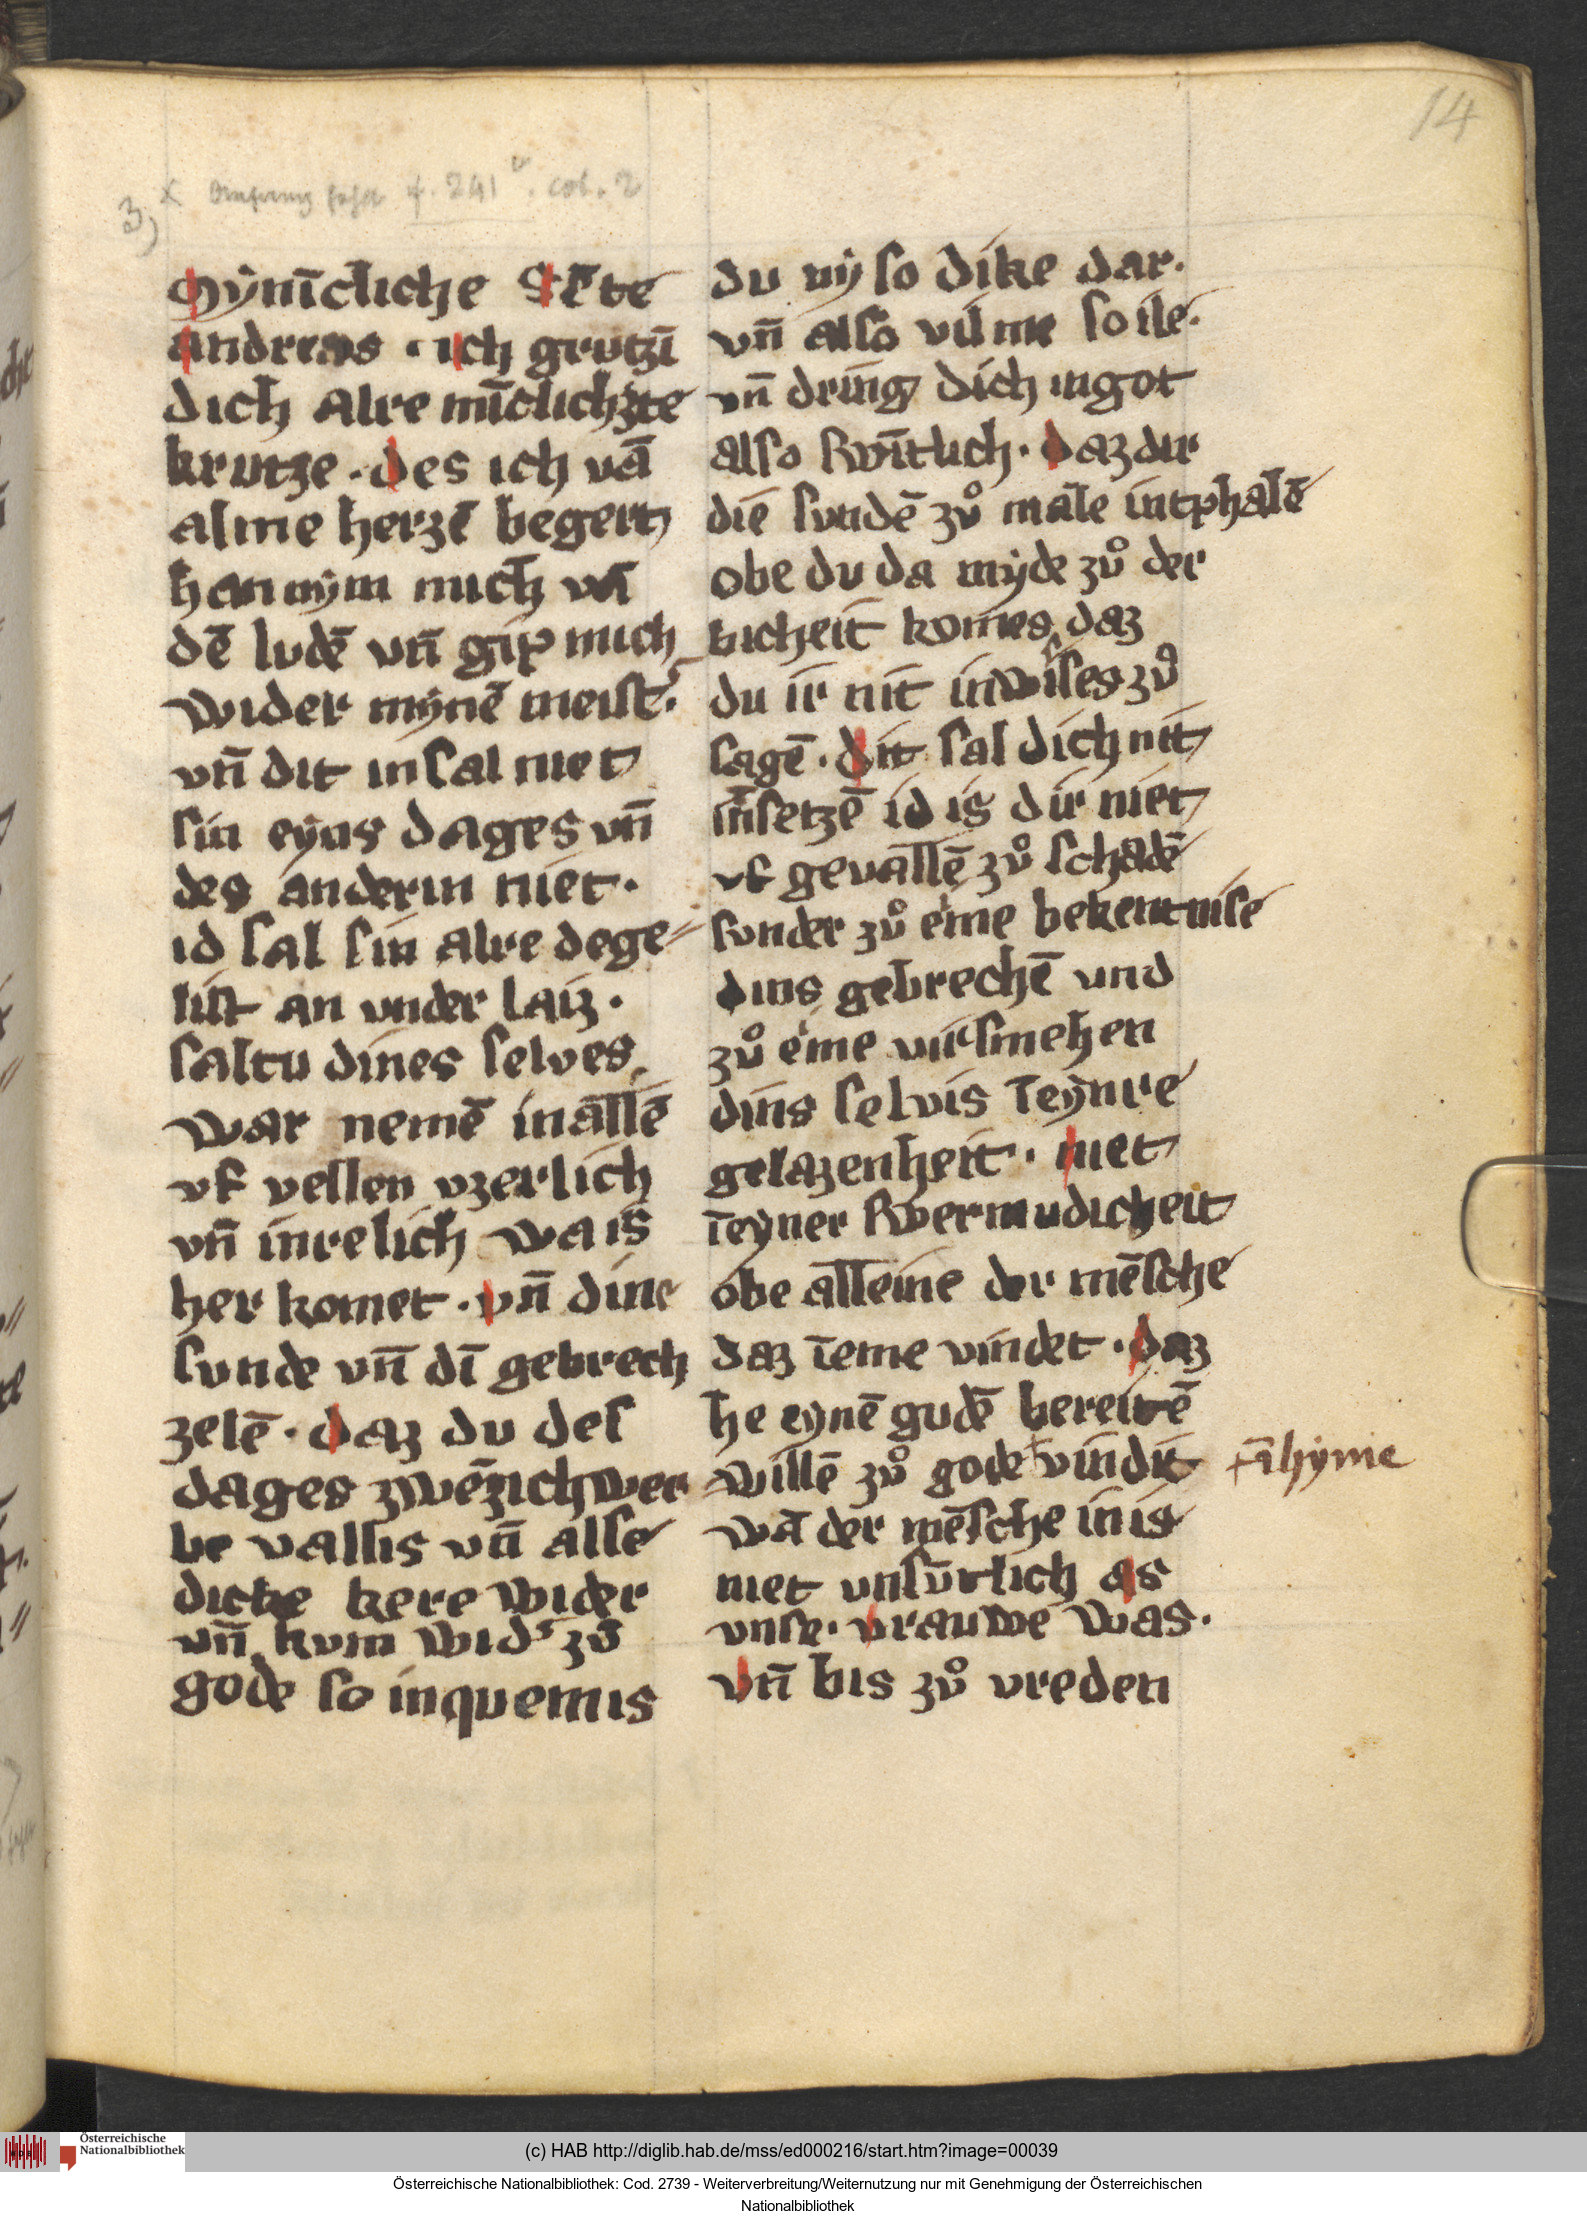 14
3,
f. 241 v. col. 2
Mẏnīcliche Sēte
andreas · ich grutzī
dich alre mīclichzte
krutze · des ich vā
alme herzē begert
han nẏm mich vā
dē ludē vn̄ gip mich
wider mẏnē meist᷑·
vn̄ dit insal niet
sin eẏns dages vn̄
des anderin niet·
id sal sin alre dege⸗
list an vnder laiz·
saltu dines selves
war nemē inallē
vf vellen vzerlich
vn̄ inrelich wa is
her komet · vn̄ dine
sunde vn̄ dī gebrech
zelē · daz du des
dages zwēzichwer
be vallis vn̄ alse
dicke kere wider
vn̄ kum wid᷑ zů
gode so inquemis
du nẏ so dike dar·
vn̄ also vil me so ile·
vn̄ dring dich ingot
also swītlich · daz dir
die sundē zů male intphalē
obe du da mẏde zů der
bicheit komes daz
du ir nit inwises zů
sagē · dit sal dich nit
īnsetzē id is dir niet
vf gevallē zů schadē
sunder zů eime bekentnise
dins gebrechē und
zů eime virsmehen
dins selvis īeẏnre
gelazenheit · niet
īeyner swermudicheit
obe alleine der mēsche
daz īeme vindet · daz
he eynē gudē bereitē
willē zů gode vindit
wā der mēsche in is
niet vnsūtlich as
vnse· vrauwe was·
vn̄ bis zů vreden
īhẏme
Österreichische
Nationalbibliothek
(c) HAB http://diglib.hab.de/mss/ed000216/start.htm?image=00039
Österreichische Nationalbibliothek: Cod. 2739 - Weiterverbreitung/Weiternutzung nur mit Genehmigung der Österreichischen
Nationalbibliothek